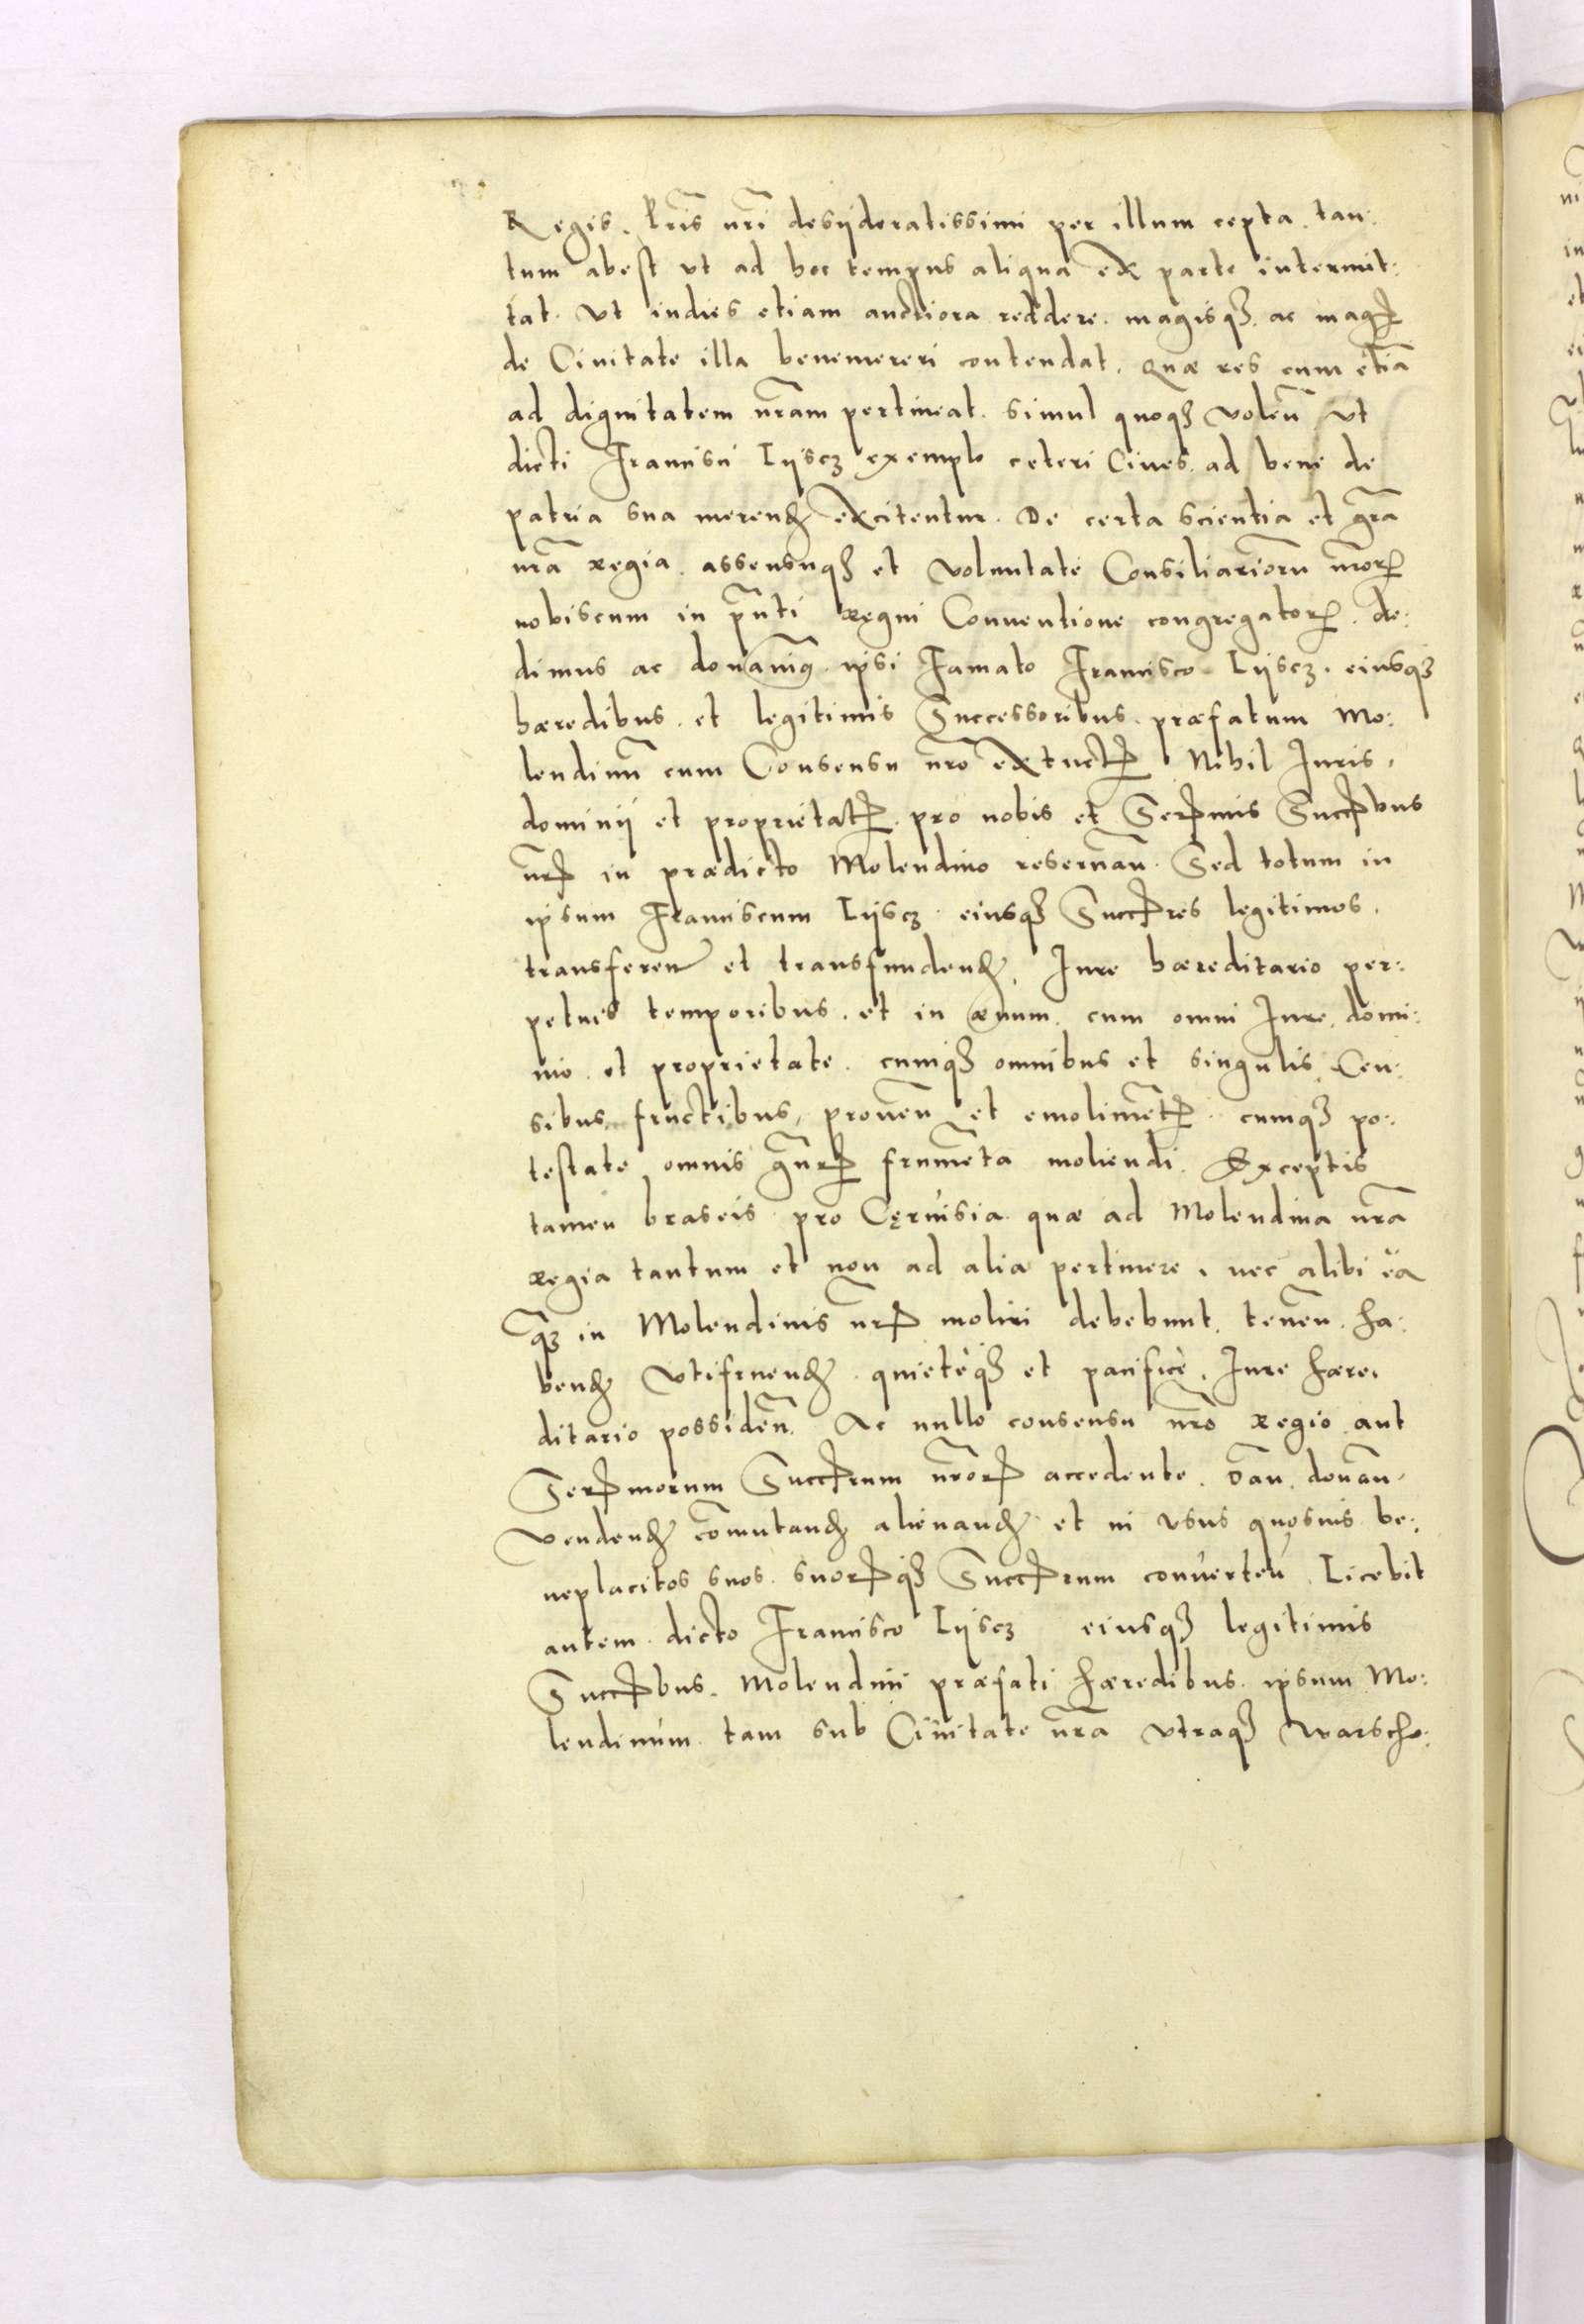 Regis. fris nri desijderatissimi per illum cepta. tan:
tum abest vt ad hoc tempus aliqua ex parte intermit:
tat. vt indies etiam auctiora reddere. magisqȝ ac mag
de Ciuitate illa benemereri contendat. quæ res cum etiā
ad dignitatem nrām pertineat. simul quoqȝ volen̄ vt
dicti Francisci Lijscz exemplo ceteri Ciues. ad bene de
patria sua merend excitentur. De certa scientia et grā
nrā regia. assensuqȝ et voluntate Consiliariorū nror
nobiscum in pn̄ti regni Conuentione congregator. de:
dimus ac donauim ipsi Famato Francisco Lijscz. eiusqȝ
hæredibus. et legitimis Successoribus. præfatum Mo:
lendinū cum Consensu nrō extuct Nihil Iuris.
dominij et proprietat. pro nobis et Sermis Succbus
nr in prædicto Molendino reseruan̄. Sed totum in
ipsum Franciscum Lijscz eiusqȝ Succres legitimos.
transferen et transfundend. Iure hæreditario per:
petuis temporibus. et in æuum. cum omni Iure. domi:
nio. et proprietate. cumqȝ omnibus et singulis. Cen:
sibus. fructibus, prouen̄ et emolimēt. cumqȝ po:
testate omnis gn̄r frumēta moliendi. Exceptis
tamen braseis pro Cęruisia. quæ ad Molendina nrā
regia tantum et non ad alia pertinere. nec alibi ea
qȝ in Molendinis nr moliri debebunt. tenen̄. ha:
bend vtifruend. quietèqȝ et pacificè. Iure hære:
ditario possiden̄. Ac nullo consensu nrō regio aut
Sermorum Succrum nror accedente. Dan̄. donan̄.
vendend cōmutand alienand et in vsus quosuis be:
neplacitos suos. suorqȝ Succrum conuerten̄. Licebit
autem dicto Francisco Lijscz eiusqȝ legitimis
Succbus. Molendini præfati hæredibus. ipsum Mo:
lendinum tam sub Ciuitate nrā vtraqȝ Warscho: